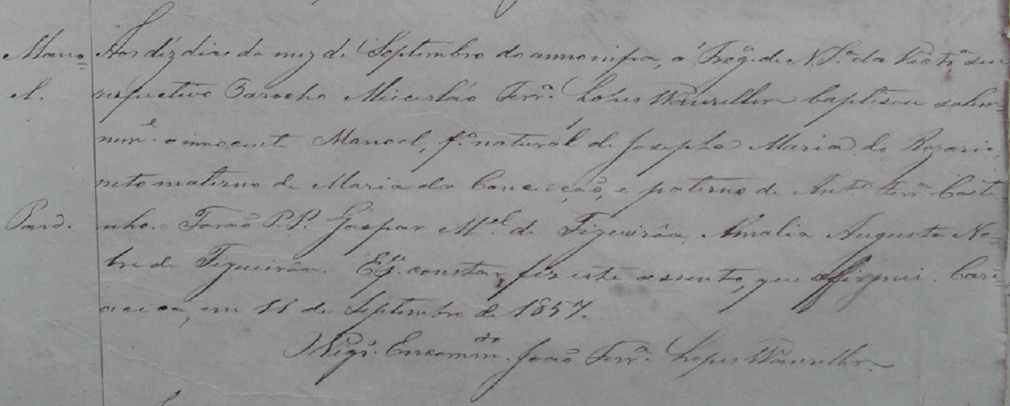 Mano= Aos déz dias do mez de Septembro do anno supra, á Freg.ª de N.Sª. da Victª. seu
el. respectivo Parocho Miceslâo Ferrª. Lopes Wanzeller baptisou solem=
nme.te o innocente Manoel, fº. natural de Josepha Maria do Rozario,
neto materno de Maria da Conceição, e paterno de Antº. Ferrª. Couti=
Pard. nho. Forão P.P. Gaspar Mel. de Figueirôa, Amalia Augusta No=
bre de Figueirôa. E pª. constar, fiz este assento, que affirmei. Cari=
acica, em 11 de Septembro de 1857.
Vigrº. Encommdo. João Ferrª. Lopes Wanzeller.